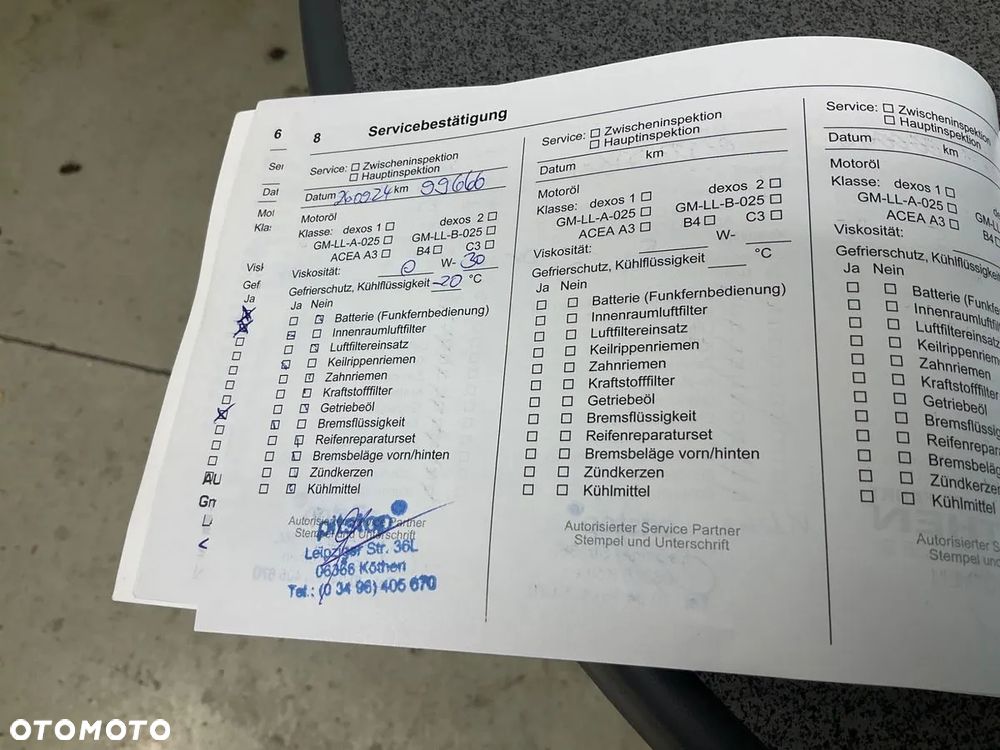 6
Vis
Gef
Ja
AU
8 Servicebestätigung
Service: Zwischeninspektion
Hauptinspektion
Datum 260924 km 99666
Motoröl
Klasse: dexos 1 dexos 2
GM-LL-A-025 GM-LL-B-025
ACEA A3 B4 C3
Viskosität: 0 W- 30
Gefrierschutz, Kühlflüssigkeit -20 °C
Ja Nein
Batterie (Funkfernbedienung)
Innenraumluftfilter
Luftfiltereinsatz
Keilrippenriemen
Zahnriemen
Kraftstofffilter
Getriebeöl
Bremsflüssigkeit
Reifenreparaturset
Bremsbeläge vorn/hinten
Zündkerzen
Kühlmittel
Autorisierter Service Partner
Stempel und Unterschrift
pitstop
Leipziger Str. 36L
06366 Köthen
Tel.: (0 34 96) 405 670
Service: Zwischeninspektion
Hauptinspektion
Datum km
Motoröl
Klasse: dexos 1 dexos 2
GM-LL-A-025 GM-LL-B-025
ACEA A3 B4 C3
Viskosität: W-
Gefrierschutz, Kühlflüssigkeit °C
Ja Nein
Batterie (Funkfernbedienung)
Innenraumluftfilter
Luftfiltereinsatz
Keilrippenriemen
Zahnriemen
Kraftstofffilter
Getriebeöl
Bremsflüssigkeit
Reifenreparaturset
Bremsbeläge vorn/hinten
Zündkerzen
Kühlmittel
Autorisierter Service Partner
Stempel und Unterschrift
Service: Zwischeninspektion
Hauptinspektion
Datum km
Motoröl
Klasse: dexos 1
GM-LL-A-025
ACEA A3 B4
Viskosität:
Gefrierschutz, Kühlflüssigkeit
Ja Nein
Batterie (Funkfernbed
Innenraumluftfilte
Luftfiltereinsatz
Keilrippenriemen
Zahnriemen
Kraftstofffilter
Getriebeöl
Bremsflüssig
Reifenrepara
Bremsbeläg
Zündkerzen
Kühlmittel
Autorisierter S
Stempel un
OTOMOTO